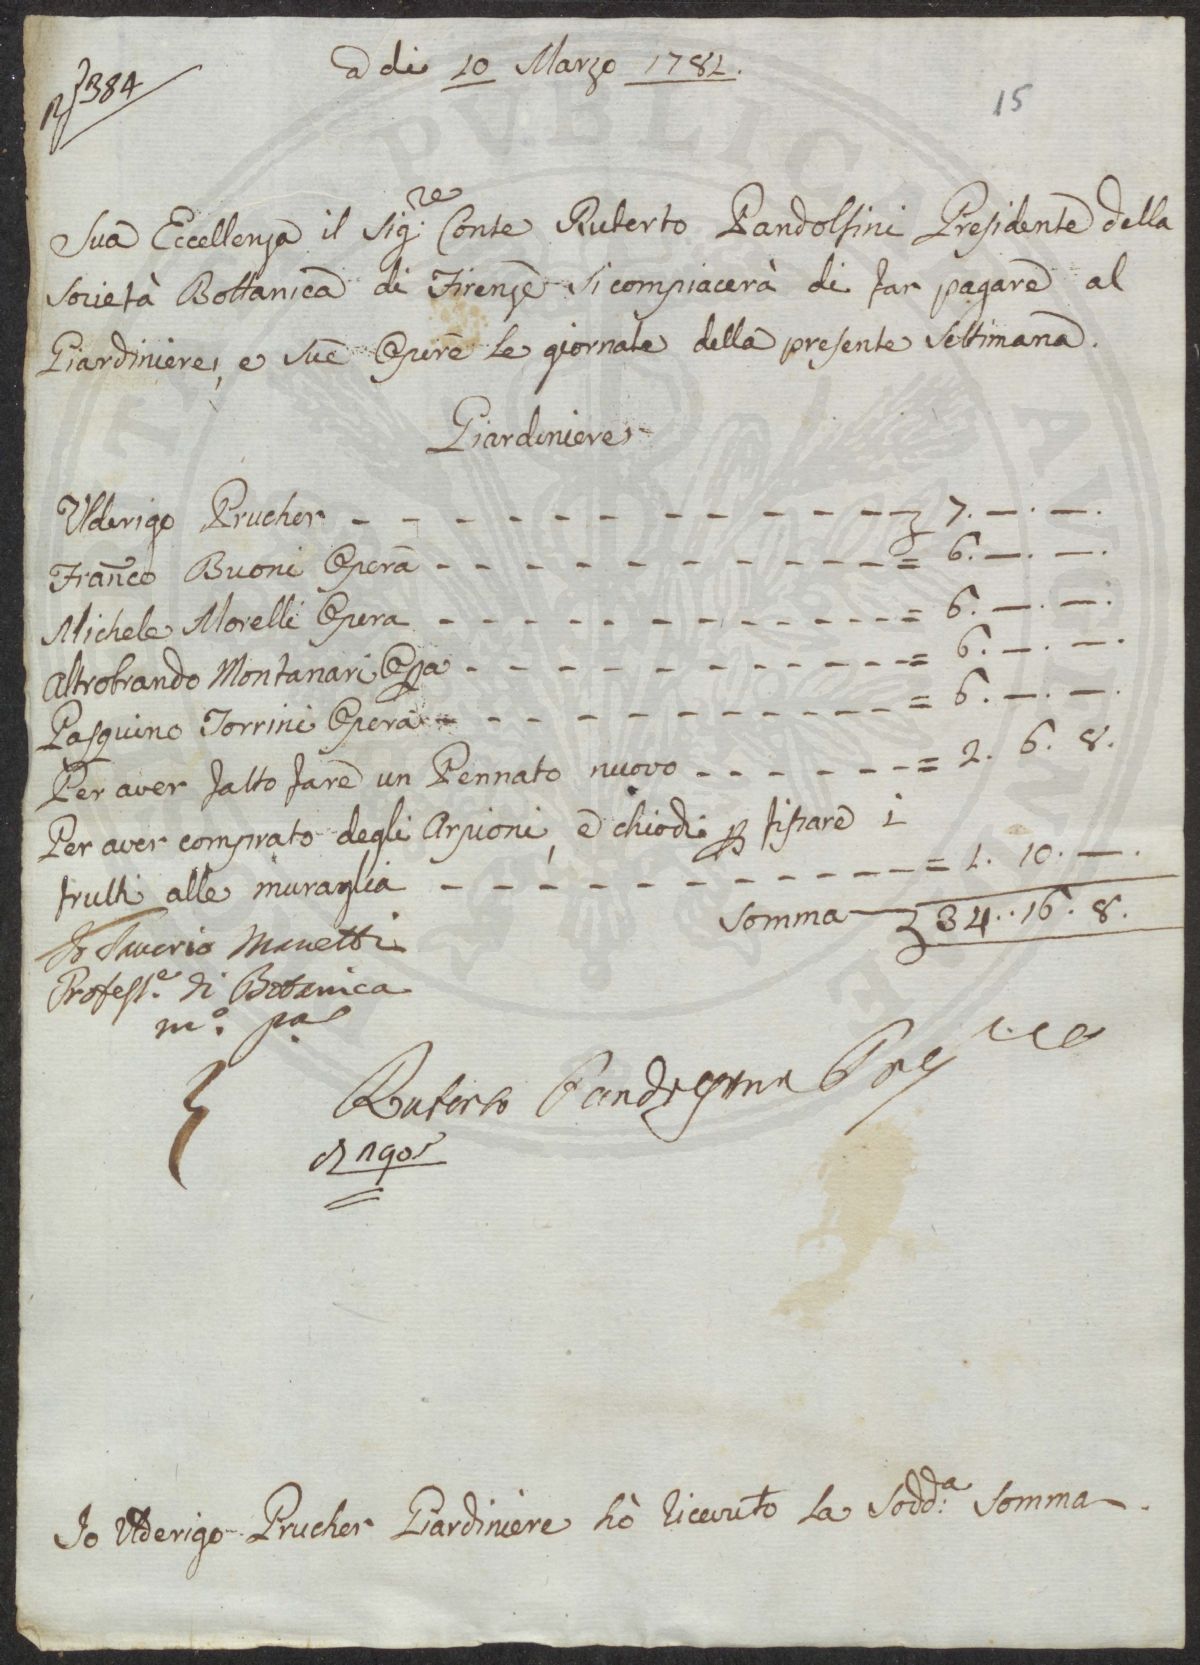 N° 384
a di 10 Marzo 1782.
15
Sua Eccellenza il Sig:re Conte Ruberto Pandolfini Presidente della
Società Bottanica di Firenze si compiacerà di far pagare al
Giardiniere, e sue Opere le giornate della presente Settimana.
Giardiniere
Ulderigo Prucher - - - - - - - - - - - - £ 7. —. —.
Fran͠co Buoni Opera - - - - - - - - - - - = 6. —. —.
Michele Morelli Opera - - - - - - - - - - = 6. —. —.
Altrobrando Montanari Opa - - - - - - - - - = 6. —. —.
Pasquino Torrini Opera - - - - - - - - - - = 6. —. —.
Per aver fatto fare un Pennato nuovo - - - - - - = 2. 6. 8.
Per aver comprato degli Arpioni, e chiodi p fissare i
frutti alle muraglia - - - - - - - - - - - = 1. 10. —.
Somma — £ 34. 16. 8.
Io Saverio Manetti
Profess.e di Botanica
m.o pa
Ruberto Pandolfini
Io Ulderigo Prucher Giardiniere hò ricevuto la Sodd:a Somma.
PVBLICA